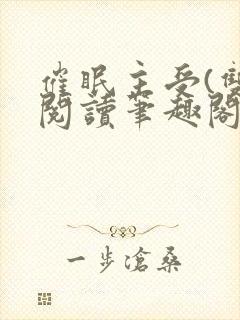 催眠主受(雙
閱讀筆趣閣
一步滄桑